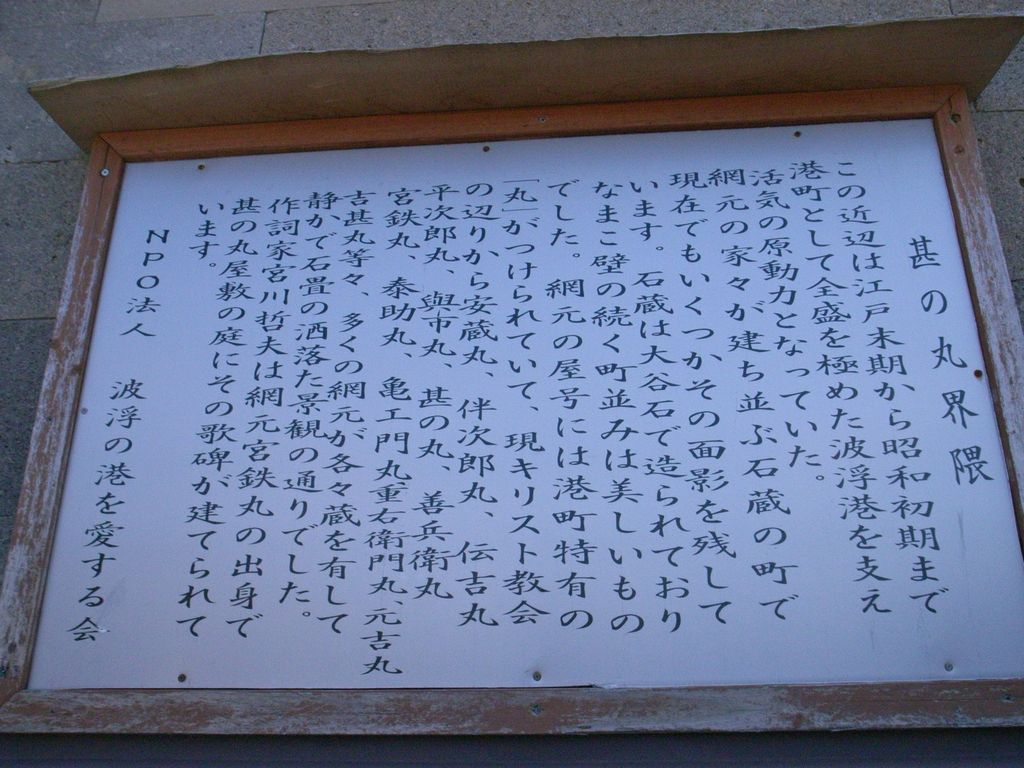 甚の丸界隈
この近辺は江戸末期から昭和初期まで
港町として全盛を極めた波浮港を支え
活気の原動力となっていた。
網元の家々が建ち並ぶ石蔵の町で
現在でもいくつかその面影を残して
います。石蔵は大谷石で造られており
なまこ壁の続く町並みは美しいもの
でした。網元の屋号には港町特有の
「丸」がつけられていて、現キリスト教会
の辺りから安蔵丸、伴次郎丸、伝吉丸
平次郎丸、與市丸、甚の丸、善兵衛丸
宮鉄丸、泰助丸、亀エ門丸、重右衛門丸、元吉丸
吉甚丸等々、多くの網元が各々蔵を有して
静かで石畳の洒落た景観の通りでした。
作詞家宮川哲夫は網元宮鉄丸の出身で
甚の丸屋敷の庭にその歌碑が建てられて
います。
NPO法人 波浮の港を愛する会